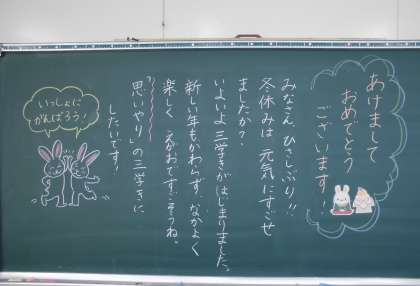 あけまして
おめでとう
ございます！
みなさん ひさしぶり!!
冬休みは 元気にすごせ
ましたか？
いよいよ 三学きがはじまりました。
新しい年もかわらず、なかよく
楽しく えがおですごそうね。
「思いやり」の三学きに
したいです！
いっしょに
がんばろう！